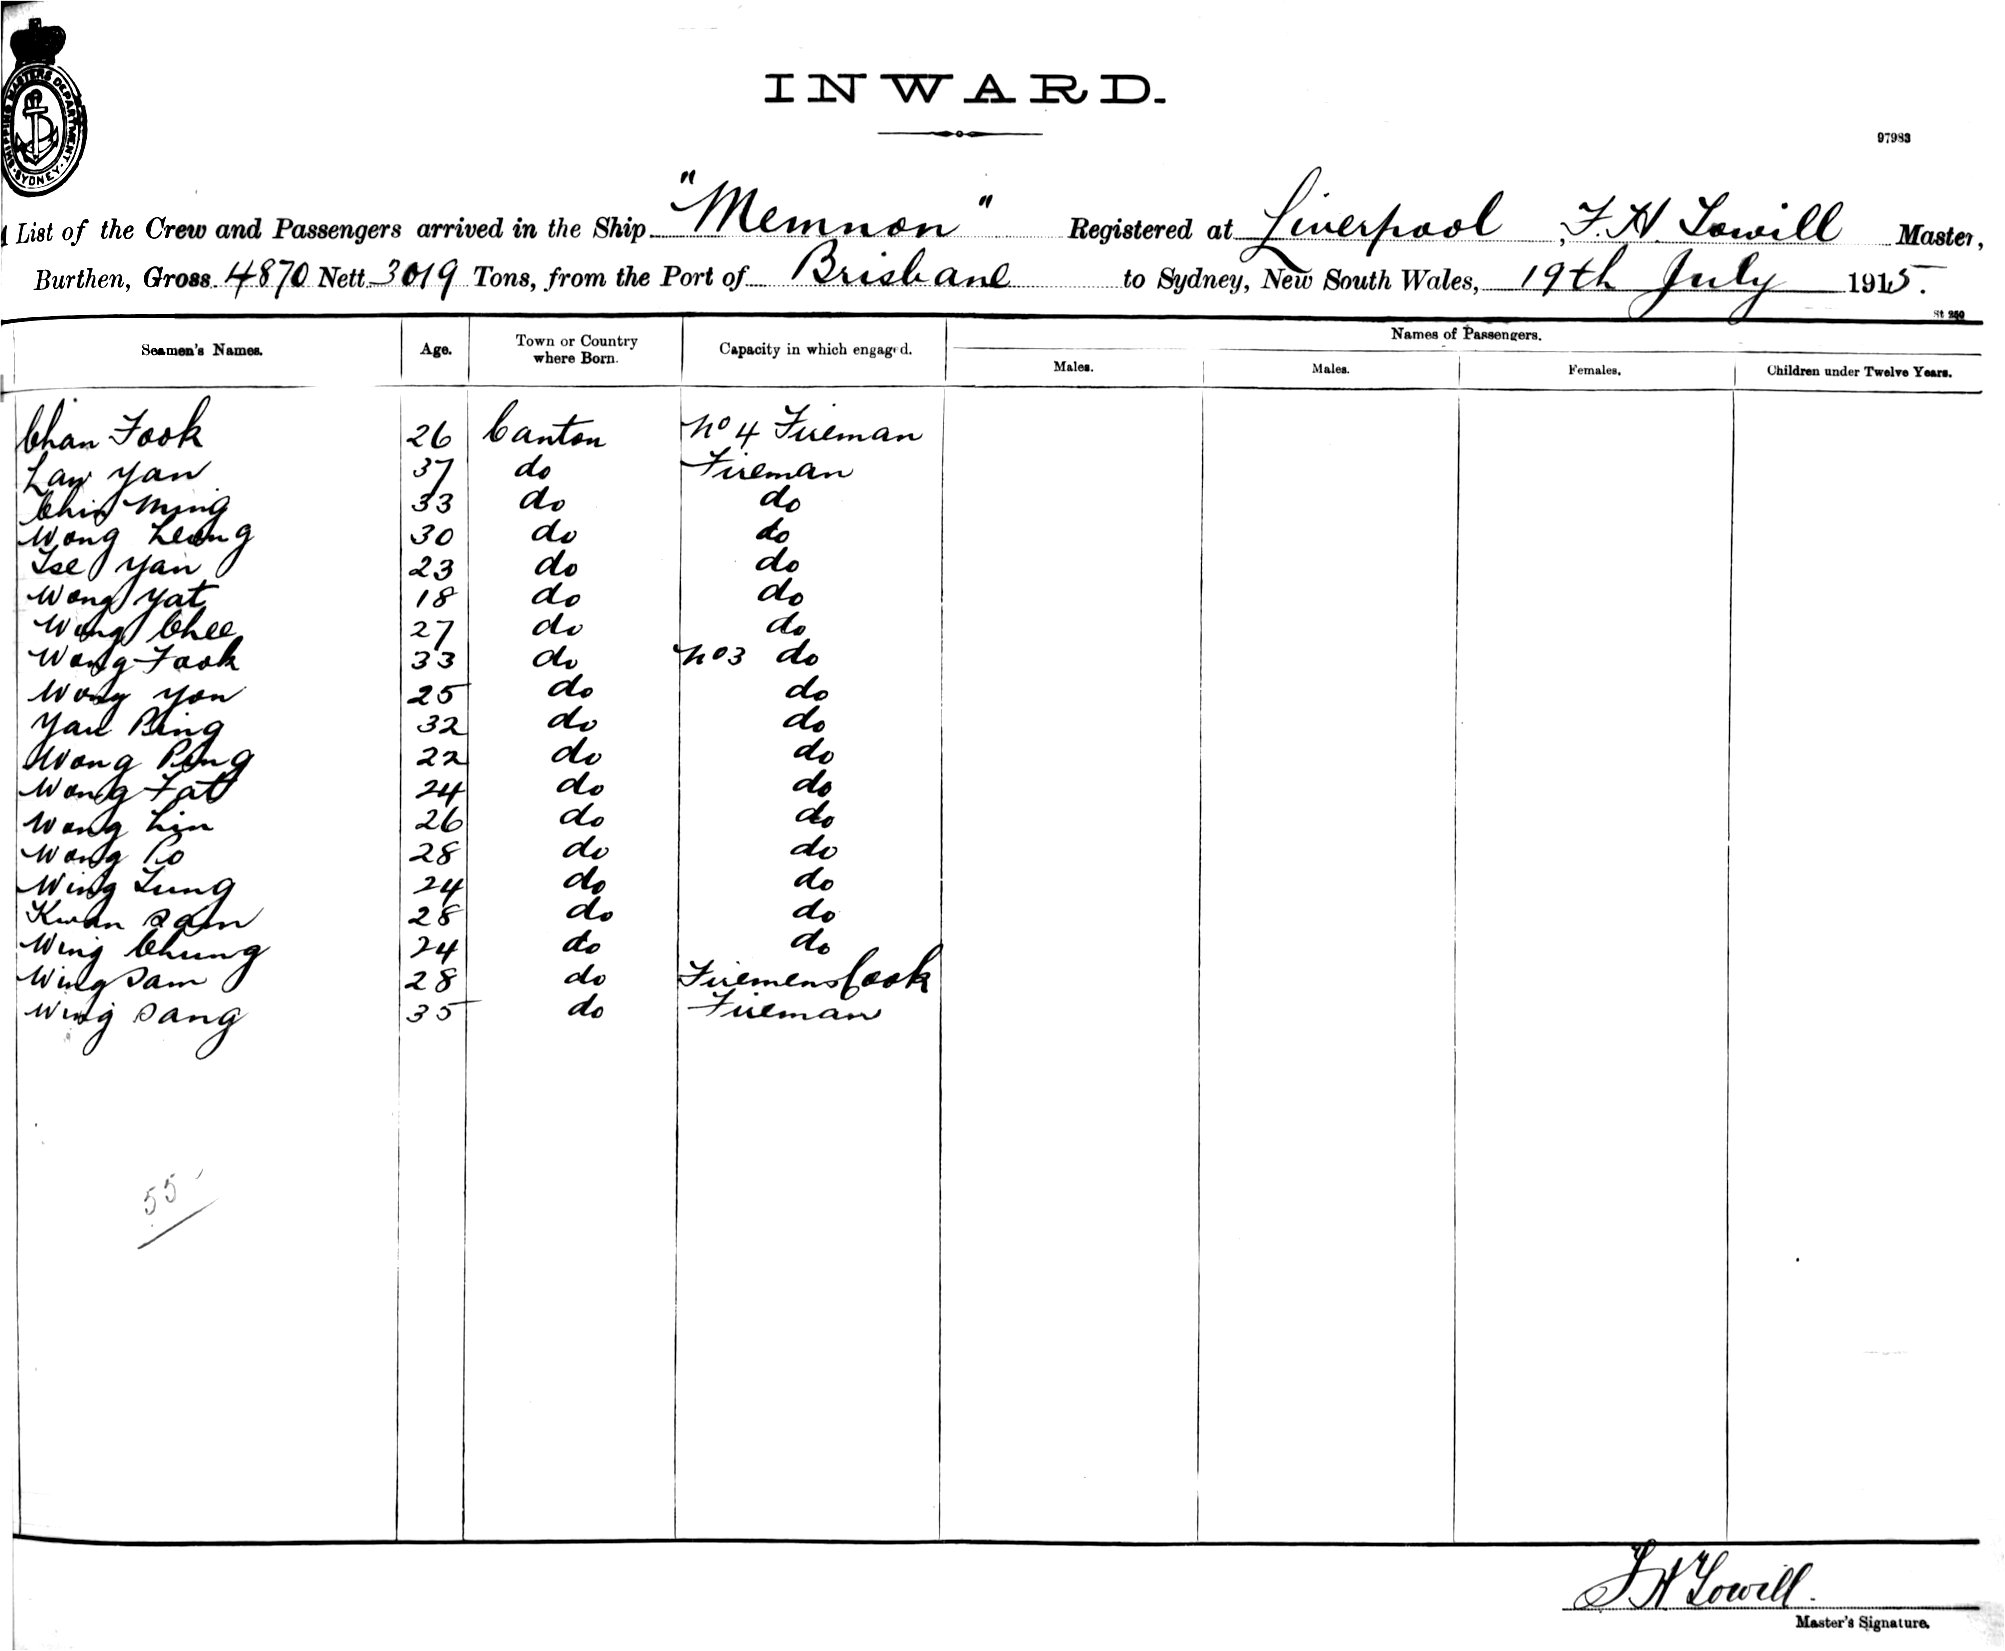 SHIPPING MASTERS DEPARTMENT. SYDNEY
INWARD.
97983
List of the Crew and Passengers arrived in the Ship "Memnon" Registered at Liverpool, F. H. Towill Master,
Burthen, Gross 4870 Nett 3019 Tons, from the Port of Brisbane to Sydney, New South Wales, 19th July 1915.
St 250
Seamen's Names. Age. Town or Country where Born. Capacity in which engaged. Names of Passengers.
Males. Males. Females. Children under Twelve Years.
Chan Fook 26 Canton No 4 Fireman
Law Yan 37 do Fireman
Chin Ming 33 do do
Wong Leong 30 do do
Tse Yan 23 do do
Wong Yat 18 do do
Wong Chee 27 do do
Wong Fook 33 do No 3 do
Wong Yon 25 do do
Yau Bing 32 do do
Wong Ping 22 do do
Wong Fat 24 do do
Wong Lin 26 do do
Wong Po 28 do do
Wing Lung 24 do do
Kwan Sam 28 do do
Wing Chung 24 do do
Wing Sam 28 do Firemens Cook
Wing Sang 35 do Fireman
55
F H Towill.
Master's Signature.